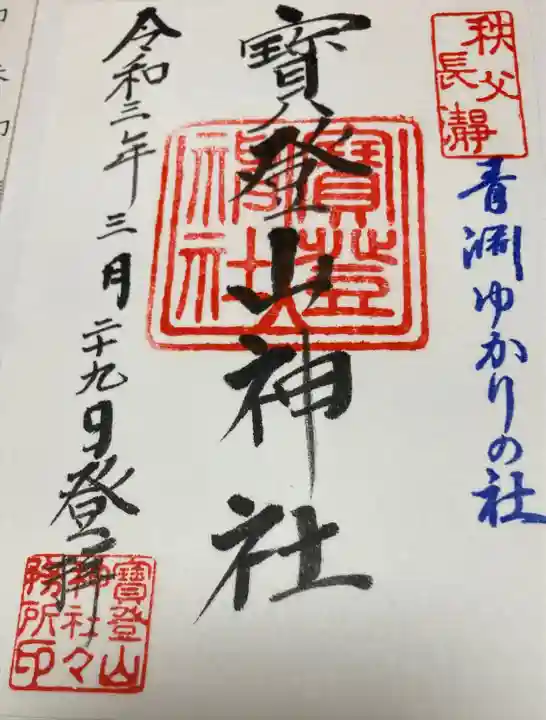 秩父
長瀞
青渊ゆかりの社
寳登山神社
寳登
神社
令和三年三月二十九日登拝
寳登山
神社々
務所印